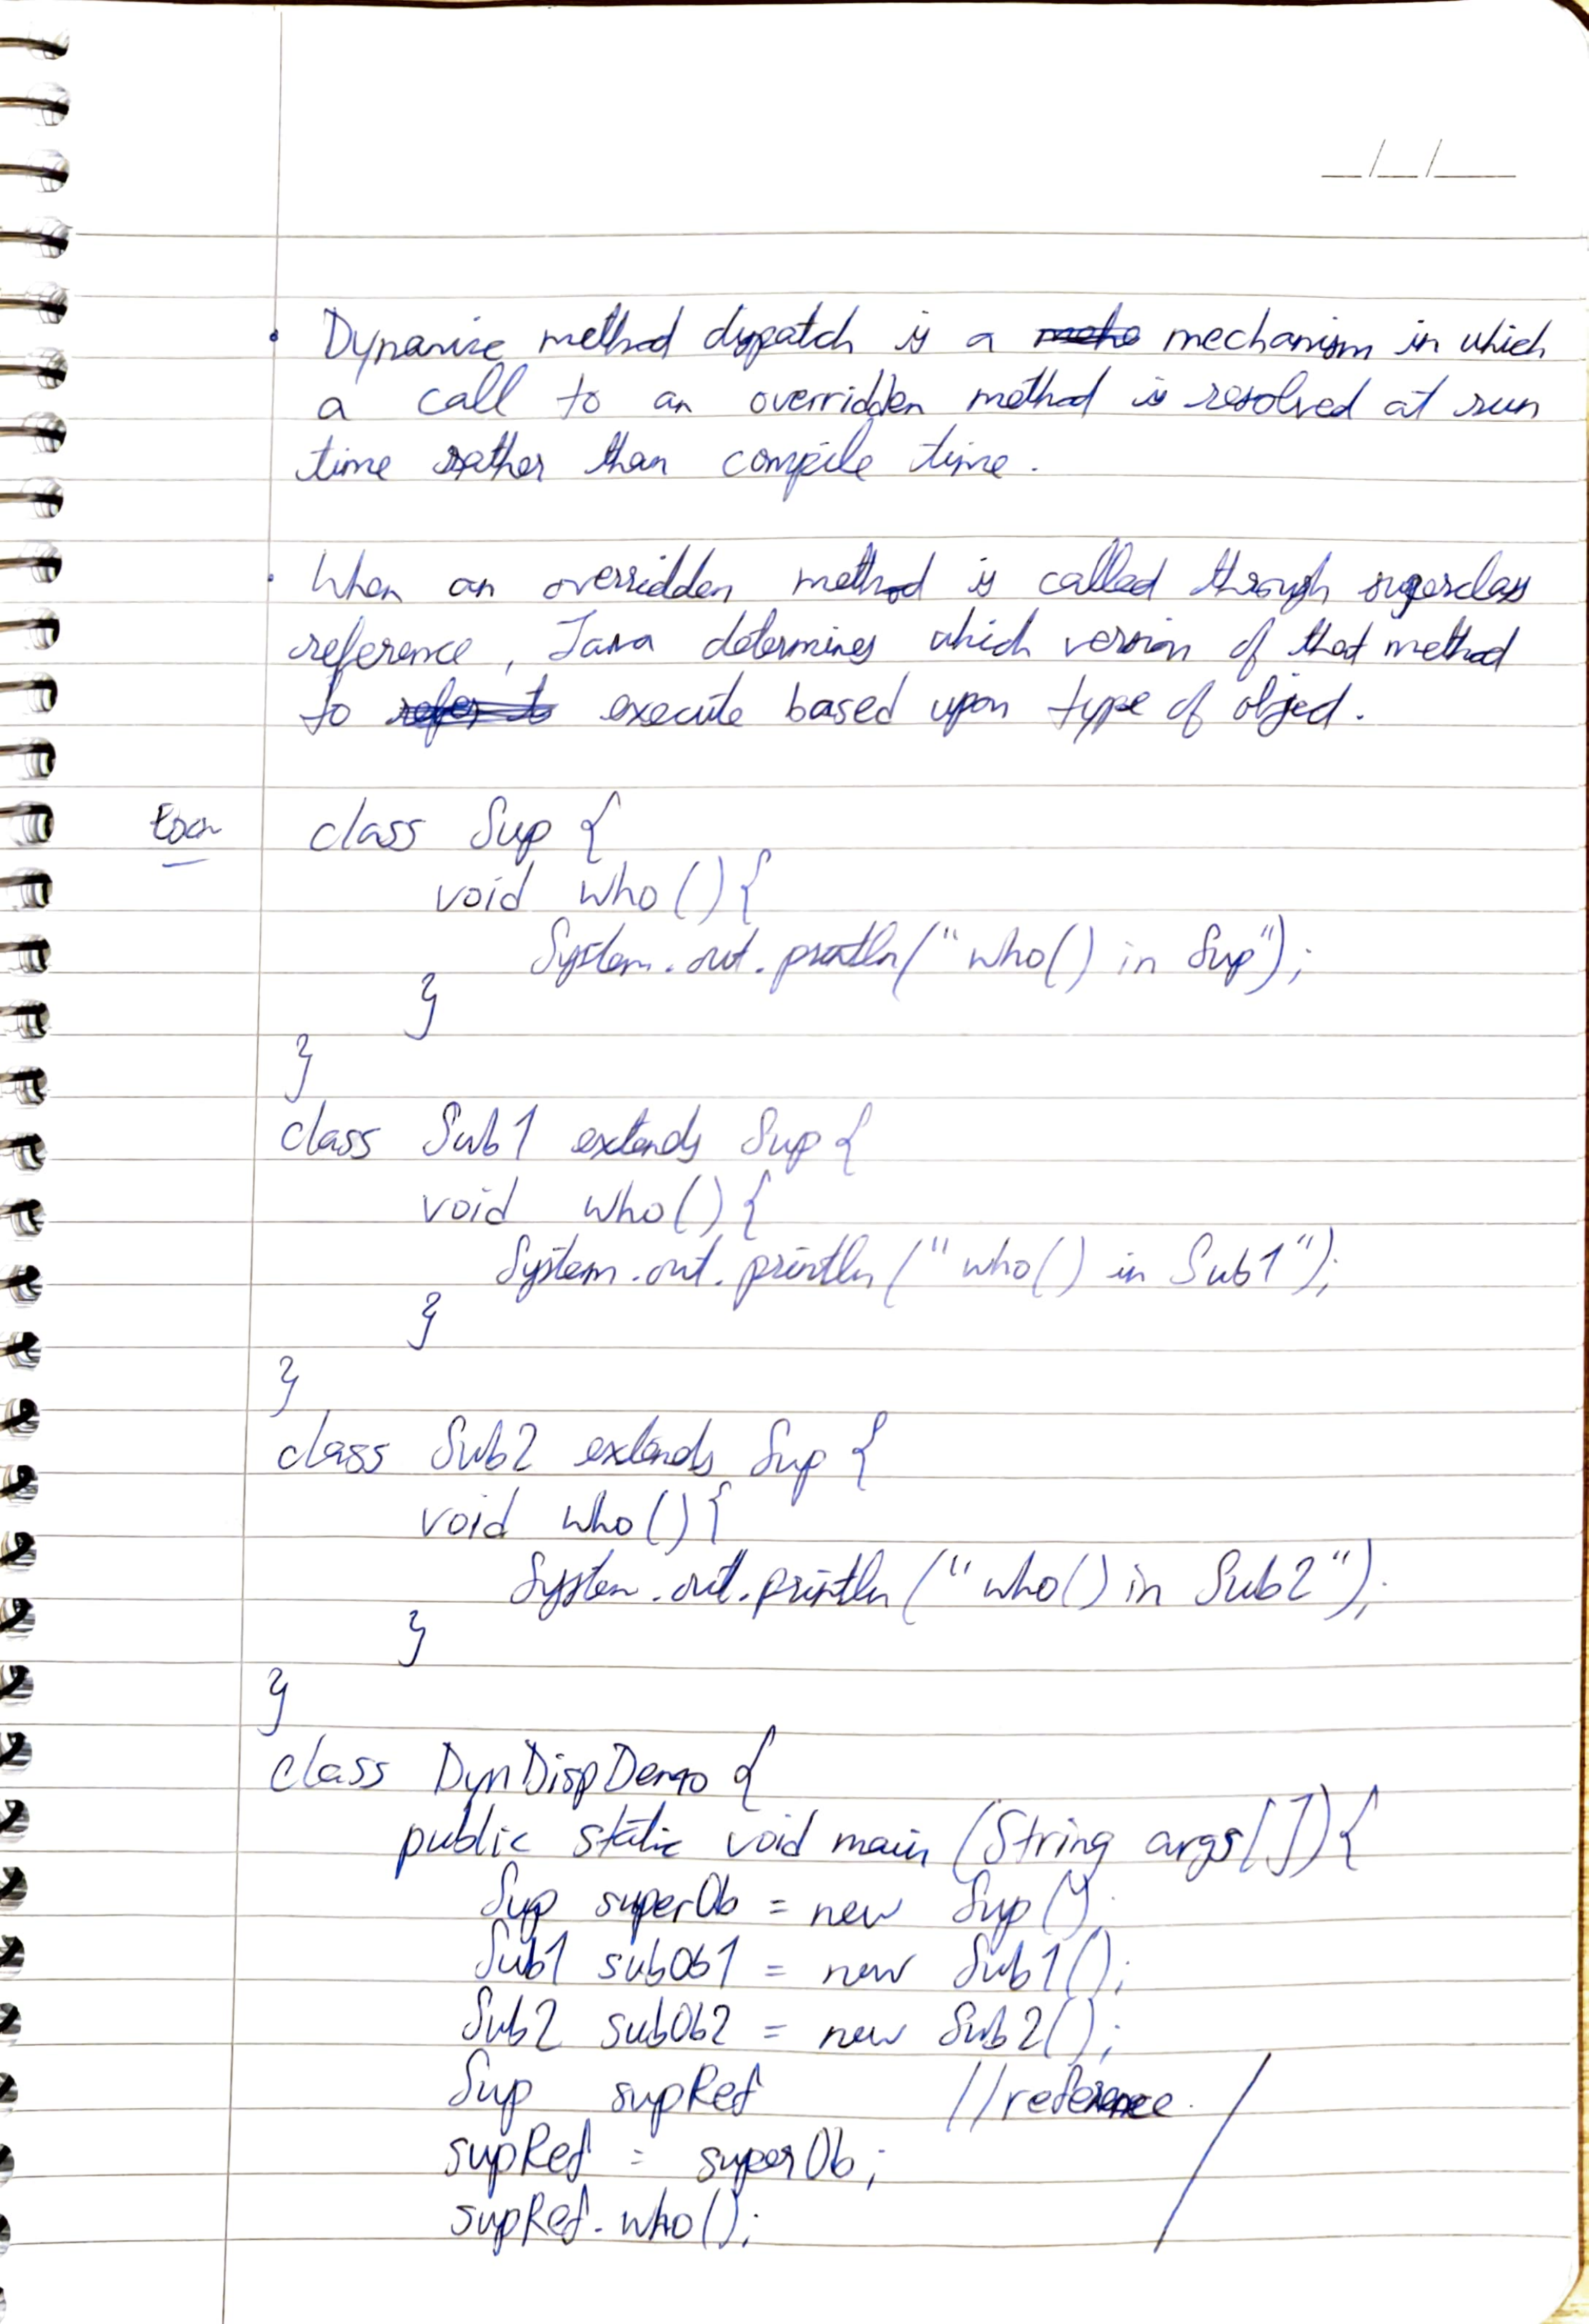 • Dynamic method dispatch is a mechanism in which
a call to an overridden method is resolved at run
time rather than compile time.
• When an overridden method is called through superclass
reference, Java determines which version of that method
to execute based upon type of object.
class Sup {
void who(){
System.out.println("who() in Sup");
}
}
class Sub1 extends Sup {
void who(){
System.out.println("who() in Sub1");
}
}
class Sub2 extends Sup {
void who(){
System.out.println("who() in Sub2");
}
}
class DynDispDemo {
public static void main (String args[]){
Sup superOb = new Sup();
Sub1 subOb1 = new Sub1();
Sub2 subOb2 = new Sub2();
Sup supRef //reference.
supRef = superOb;
supRef.who();